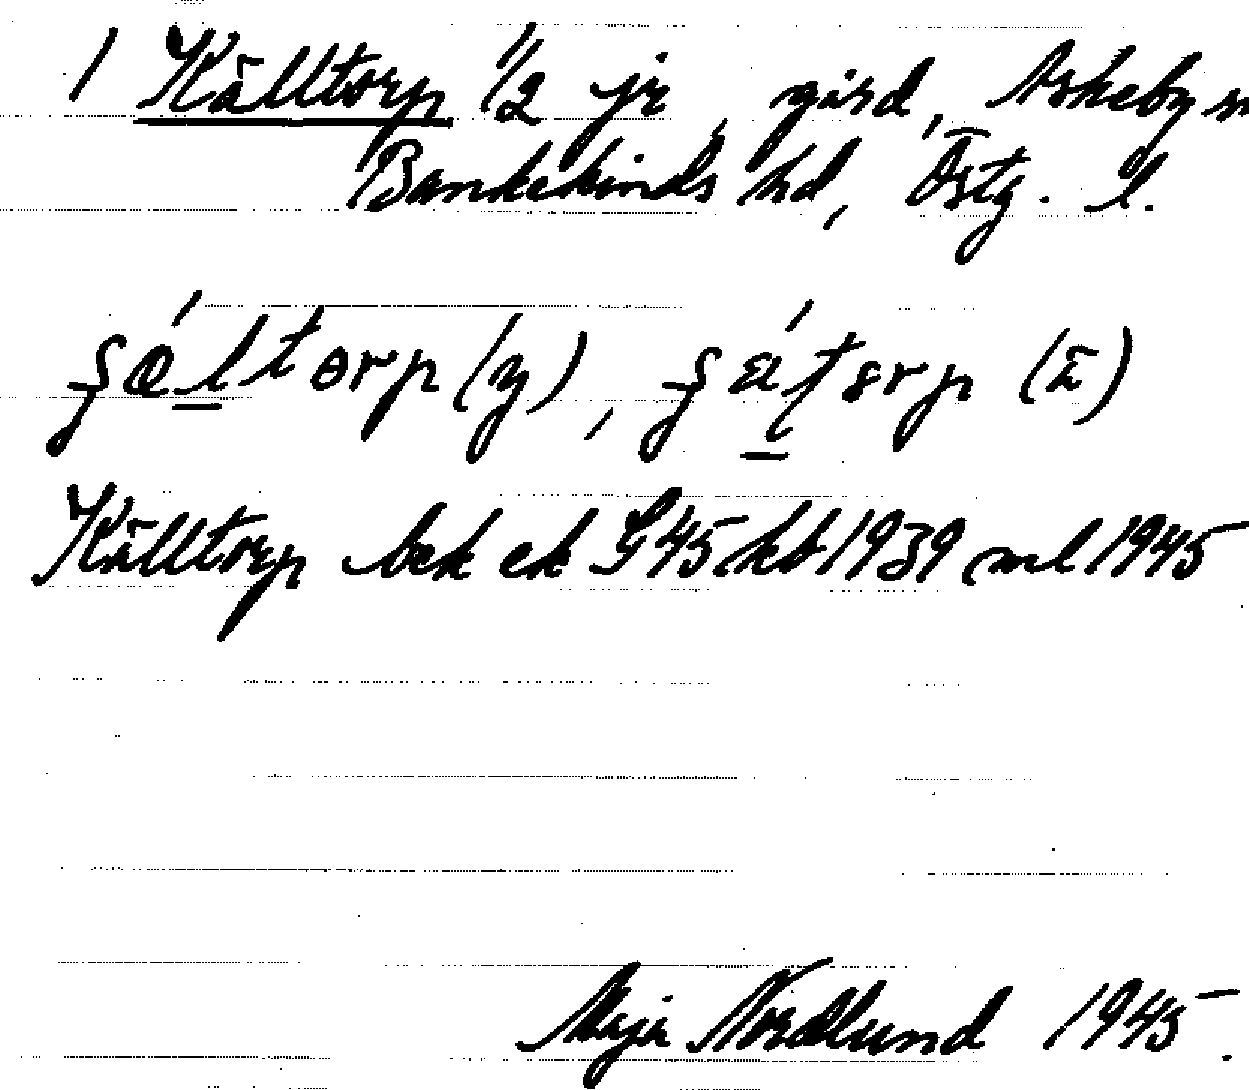 1 Källtorp 1/2 jr, gård, Askeby sn
Bankekinds hd, Östg. l.
(y), (ä)
Källtorp bek ek S 45 kb 1939 ml 1945
Maja Nordlund 1945.